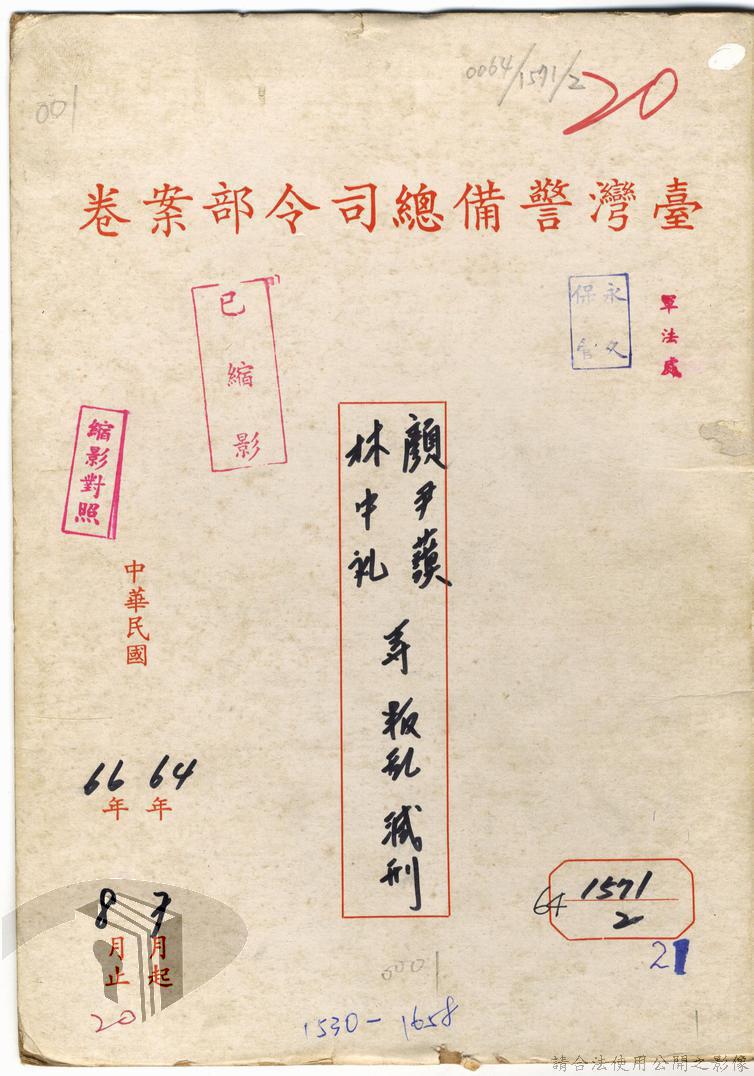 001
0064/1571/2
20
臺灣警備總司令部案卷
軍法處
永久
保管
已縮影
縮影對照
顏尹謨
林中礼
等叛乱減刑
中華民國
64年7月起
66年8月止
20
64 1571
2
21
0001
1530-1658
請合法使用公開之影像